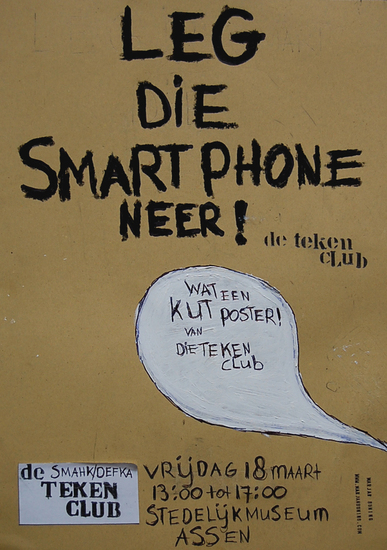 LEG
DIE
SMARTPHONE
NEER!
de teken
club
WAT EEN
KUT POSTER!
VAN
DIE TEKEN
CLUB
de SMAHK/DEFKA
TEKEN
CLUB
VRIJDAG 18 MAART
13:00 tot 17:00
STEDELIJKMUSEUM
ASSEN